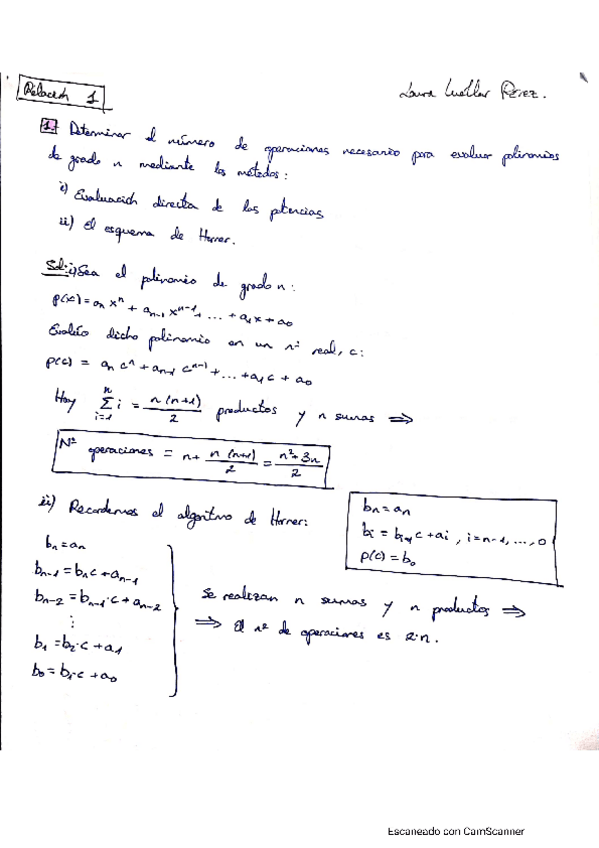 Relación 1
Laura Cuéllar Pérez.
1. Determinar el número de operaciones necesario para evaluar polinomios
de grado n mediante los métodos:
i) Evaluación directa de las potencias
ii) El esquema de Horner.
Sol: i) Sea el polinomio de grado n:
p(x) = aₙxⁿ + aₙ₋₁xⁿ⁻¹ + ... + a₁x + a₀
Evalúo dicho polinomio en un nº real, c:
p(c) = aₙcⁿ + aₙ₋₁cⁿ⁻¹ + ... + a₁c + a₀
Hay ∑ⁿᵢ₌₁ i = n(n+1)/2 productos y n sumas ⇒
Nº operaciones = n + n(n+1)/2 = (n²+3n)/2
ii) Recordemos el algoritmo de Horner:
bₙ = aₙ
bᵢ = bᵢ₊₁c + aᵢ, i = n-1, ..., 0
p(c) = b₀
bₙ = aₙ
bₙ₋₁ = bₙc + aₙ₋₁
bₙ₋₂ = bₙ₋₁·c + aₙ₋₂
⋮
b₁ = b₂·c + a₁
b₀ = b₁·c + a₀
Se realizan n sumas y n productos ⇒
⇒ El nº de operaciones es 2·n.
Escaneado con CamScanner